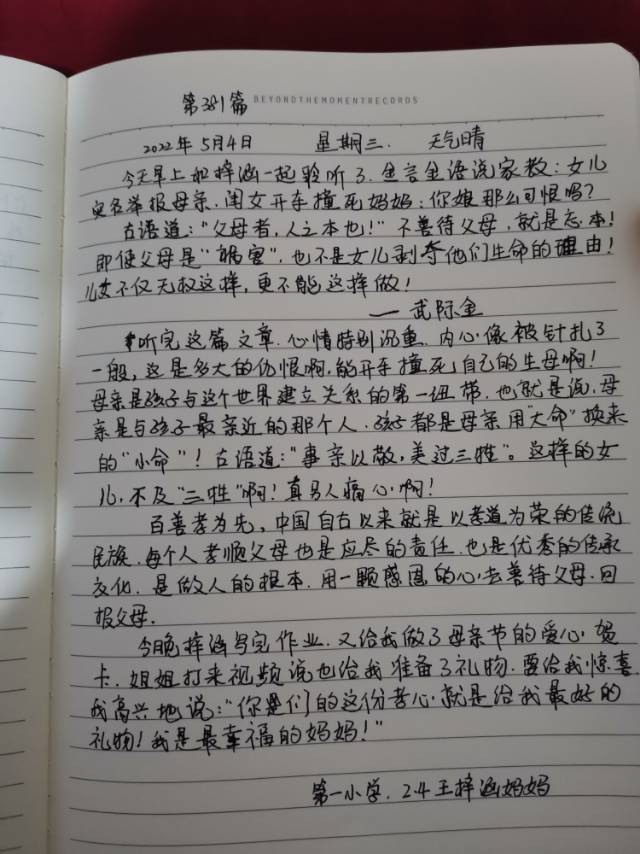 第381篇 BEYONDTHEMOMENTRECORDS
2022年5月4日 星期三. 天气晴
今天早上和梓涵一起聆听了.金言金语说家教:女儿
实名举报母亲.闺女开车撞死妈妈:你娘那么可恨吗?
古语道:"父母者,人之本也!"不善待父母,就是忘本!
即使父母是"祸害",也不是女儿剥夺他们生命的理由!
儿女不仅无权这样,更不能这样做!
——武际金
听完这篇文章.心情特别沉重.内心像被针扎了
一般,这是多大的仇恨啊,能开车撞死自己的生母啊!
母亲是孩子与这个世界建立关系的第一纽带.也就是说.母
亲是与孩子最亲近的那个人.孩子都是母亲用"大命"换来
的"小命"!古语道:"事亲以敬,美过三牲"。这样的女
儿.不及"三牲"啊!真另人痛心啊!
百善孝为先,中国自古以来就是以孝道为荣的传统
民族.每个人孝顺父母也是应尽的责任.也是优秀的传承
文化.是做人的根本.用一颗感恩的心去善待父母.回
报父母.
今晚梓涵写完作业.又给我做了母亲节的爱心贺
卡.姐姐打来视频说也给我准备了礼物.要给我惊喜
我高兴地说:"你是们的这份孝心.就是给我最好的
礼物!我是最幸福的妈妈!"
第一小学.2.4王梓涵妈妈